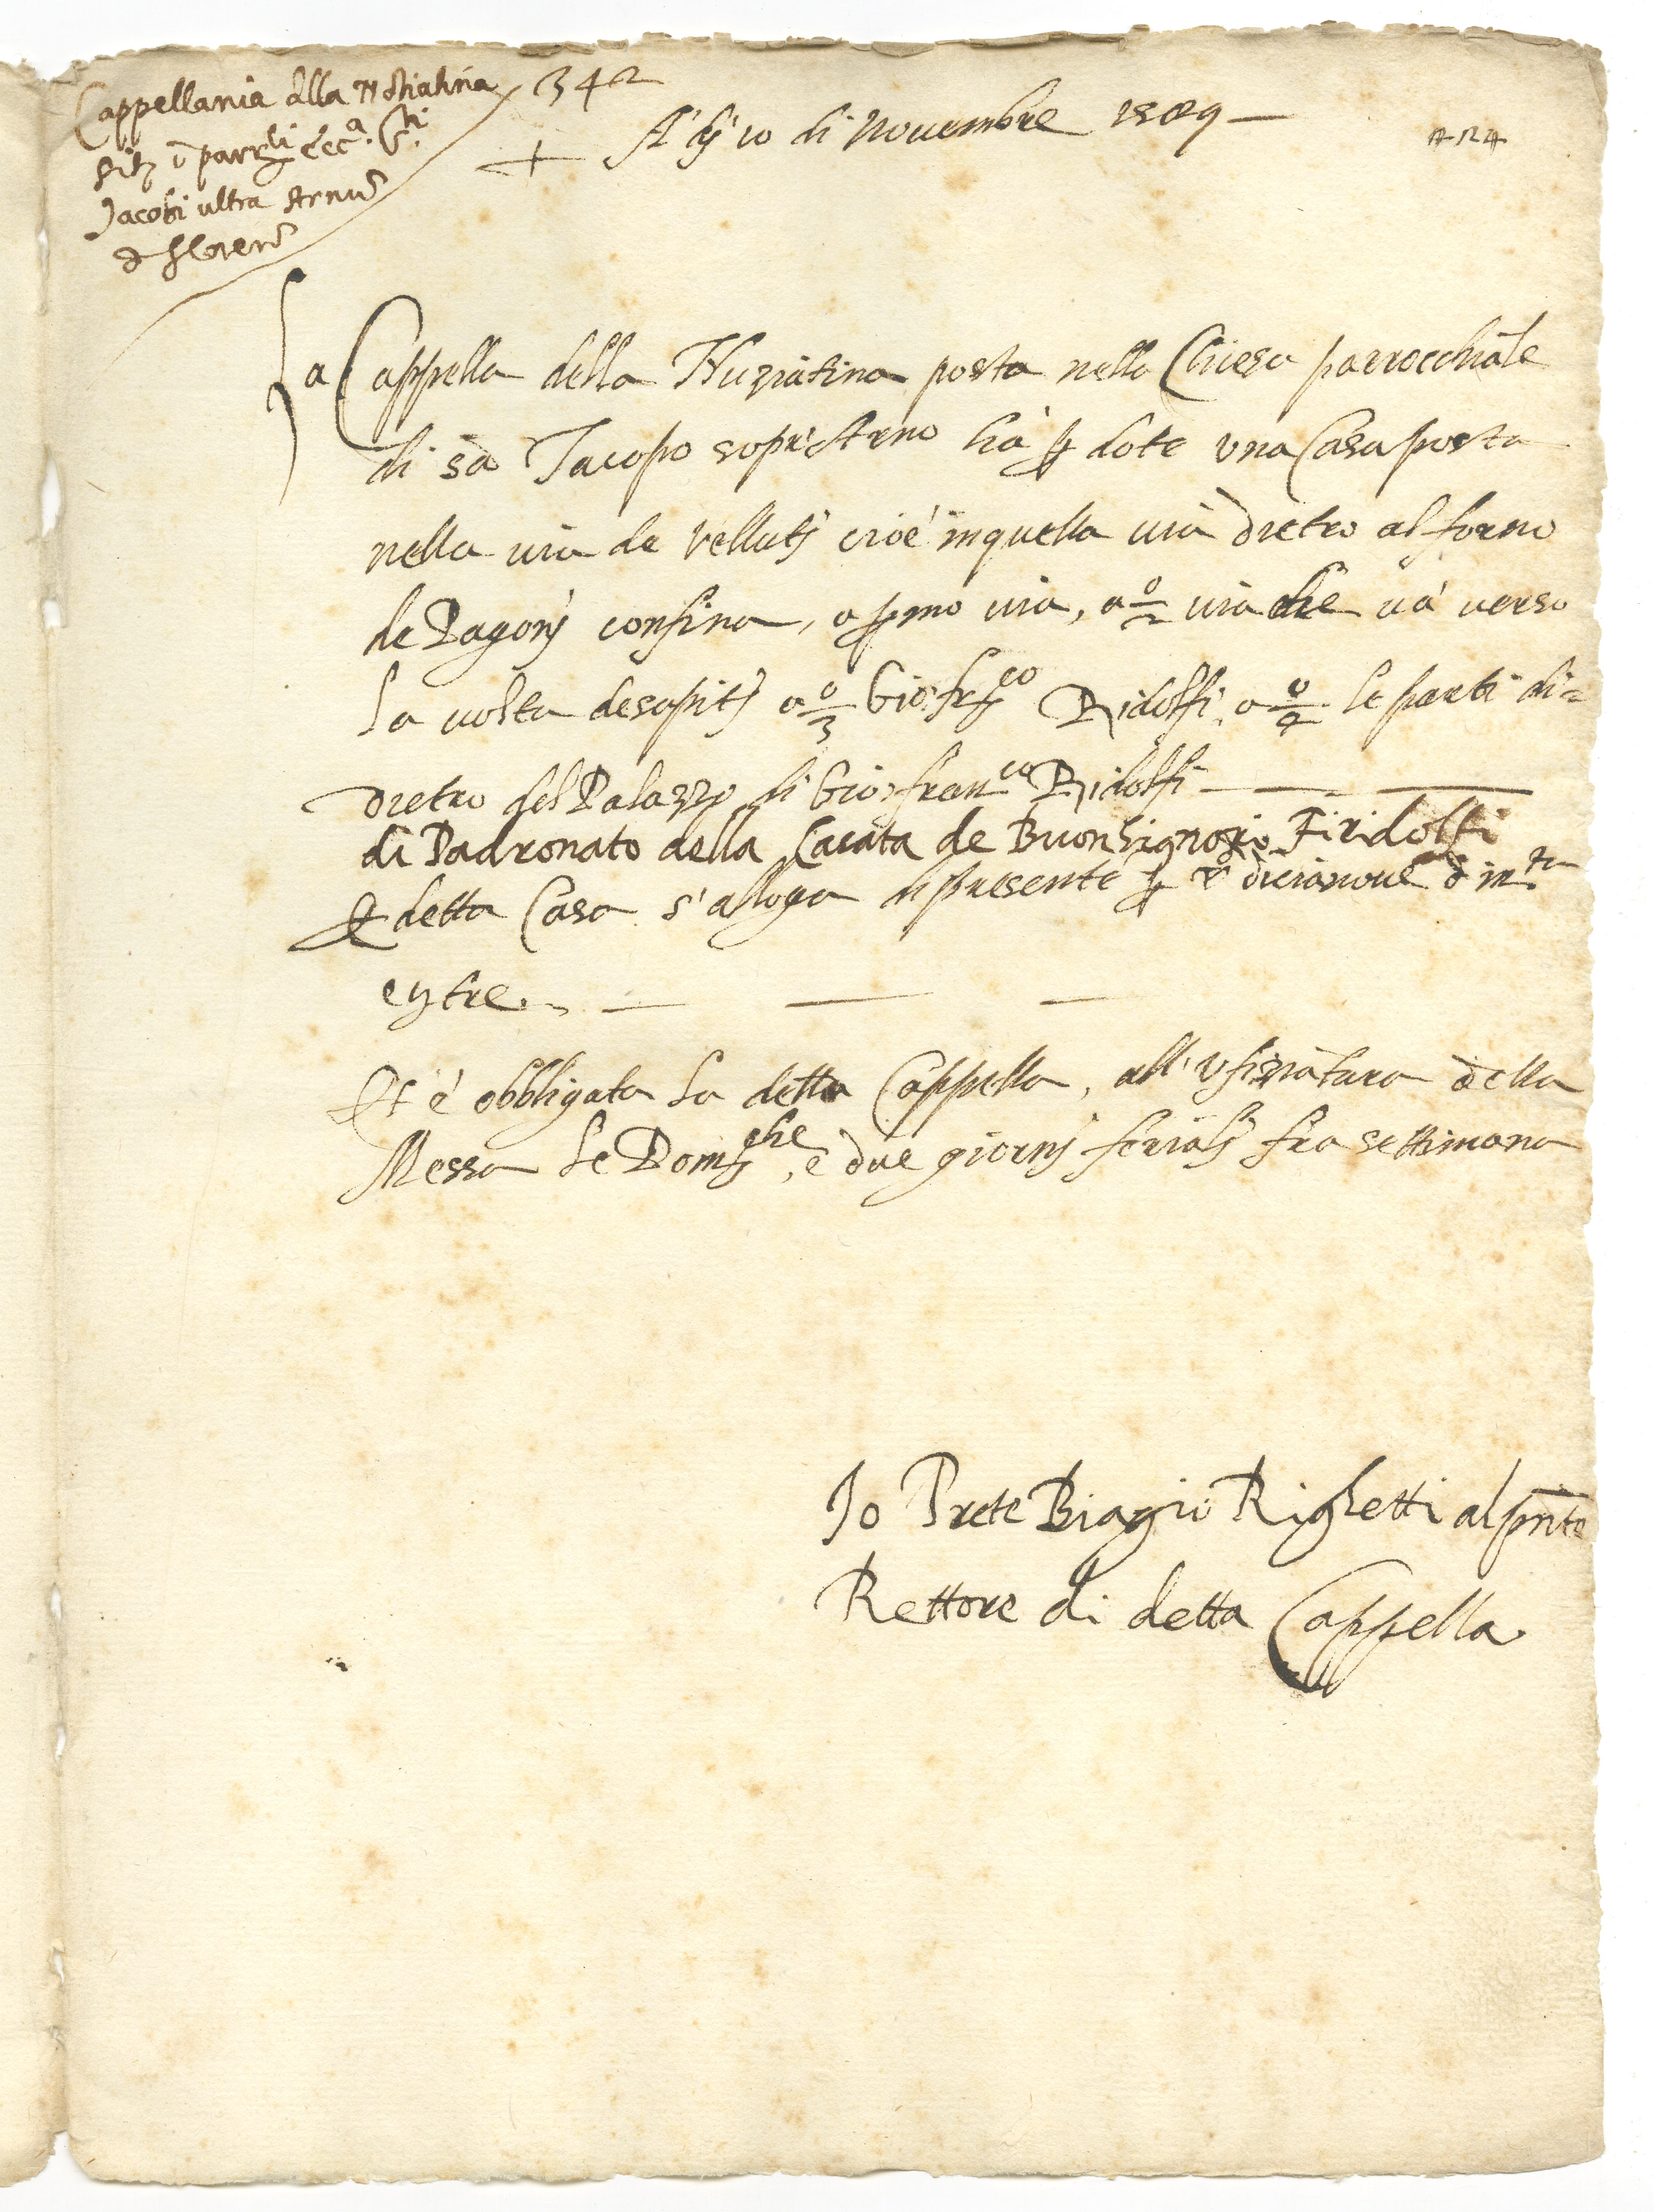 Cappellania dlla Nūtiatina
sitȝ ī parrli ecca. Sti.
Jacobi ultra Arnū
d florenᵉ
342
+ A' dj 10 di Nouembre 1589 —
La Cappella della Nuziatina posta nella Chiesa parrocchiale
di sā Jacopo sopr'Arno hà ꝑ dote vna Casa posta
nella uia de vellutj cioè in quella uia dietro al forno
de Pagonj confina, a pmo uia, a 2º uia che uà uerso
la uolta de sapitj a 3º Gio: frco Ridolfi, a 4º le parti di=
dietro del Palazzo di Gio: franco Ridolfi — — —
di Padronato della Casata de Buonsignorj Firidolfi
& detta Casa s'alloga di presente ꝑ diciannoue d
entre. — — —
Et è obbligata la detta Cappella, all'vfiziatura della
Messa le Domche, e due giornj ferialj fra settimana
Io Prete Biagio Righetti al pn̄te
Rettore di detta Cappella